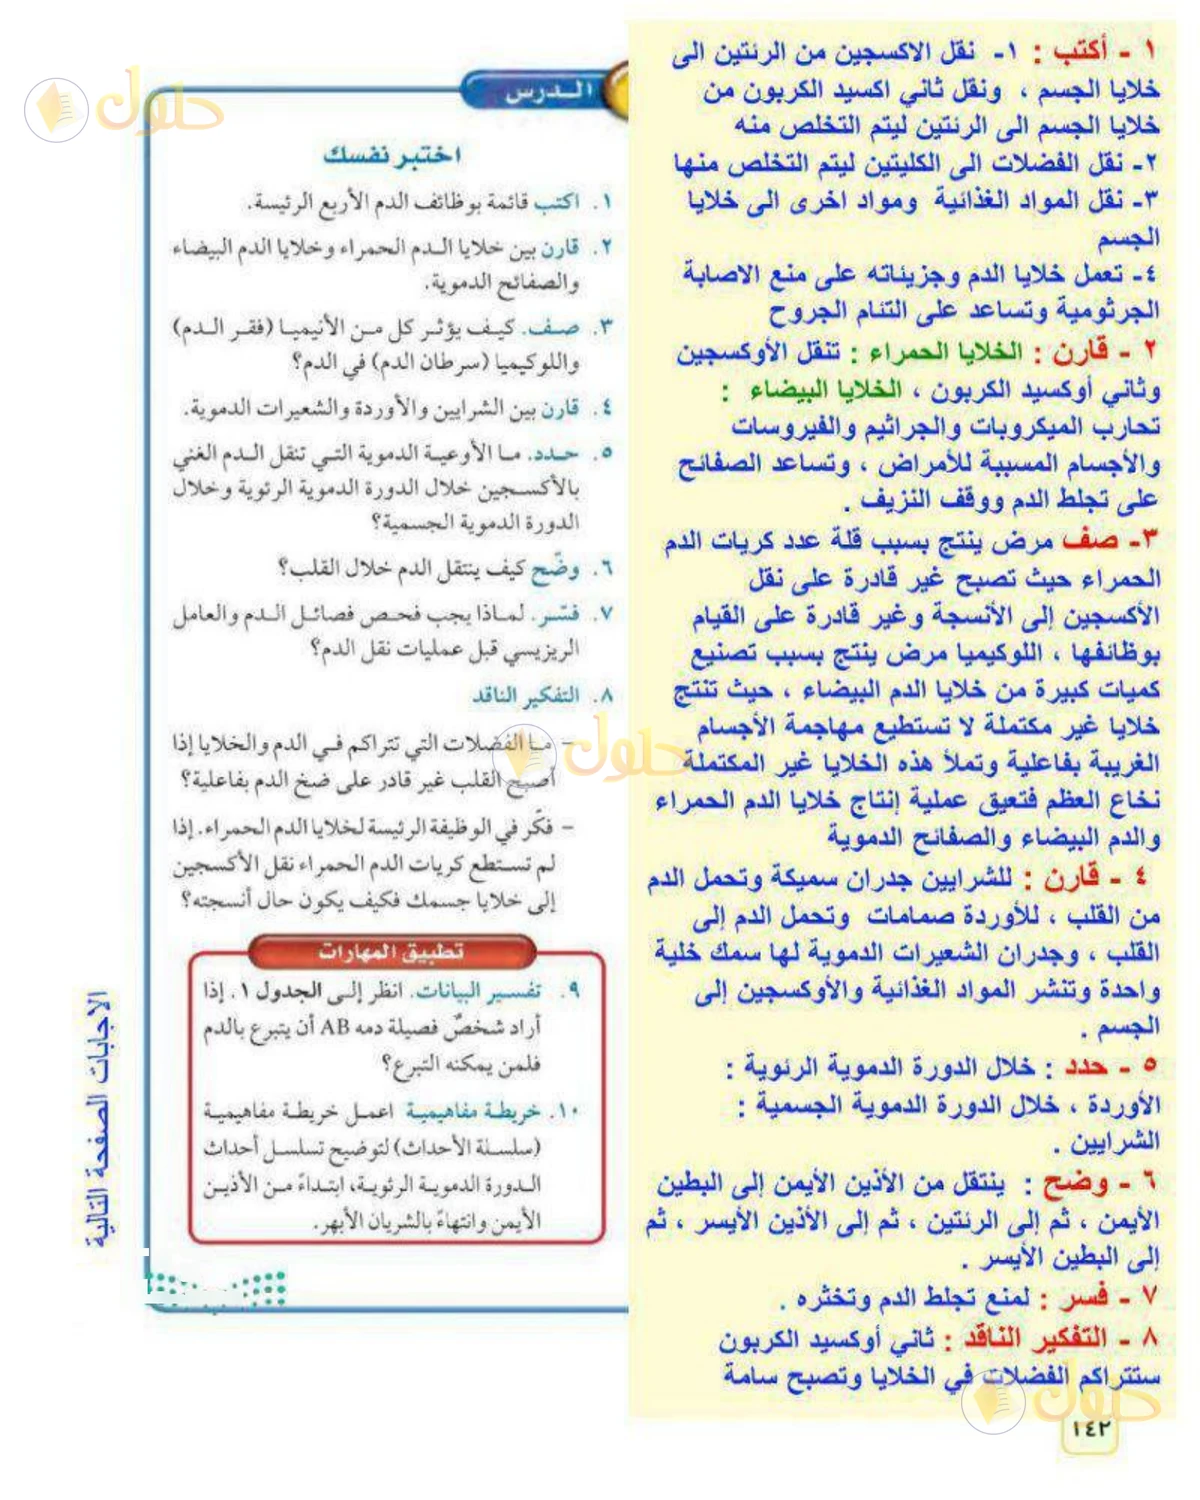 ١ - أكتب : ١- نقل الاكسجين من الرئتين الى
خلايا الجسم ، ونقل ثاني اكسيد الكربون من
خلايا الجسم الى الرئتين ليتم التخلص منه
٢- نقل الفضلات الى الكليتين ليتم التخلص منها
٣- نقل المواد الغذائية ومواد اخرى الى خلايا
الجسم
٤- تعمل خلايا الدم وجزيئاته على منع الاصابة
الجرثومية وتساعد على التنام الجروح
٢ - قارن : الخلايا الحمراء : تنقل الأوكسجين
وثاني أوكسيد الكربون ، الخلايا البيضاء :
تحارب الميكروبات والجراثيم والفيروسات
والأجسام المسببة للأمراض ، وتساعد الصفائح
على تجلط الدم ووقف النزيف .
٣- صف مرض ينتج بسبب قلة عدد كريات الدم
الحمراء حيث تصبح غير قادرة على نقل
الأكسجين إلى الأنسجة وغير قادرة على القيام
بوظائفها ، اللوكيميا مرض ينتج بسبب تصنيع
كميات كبيرة من خلايا الدم البيضاء ، حيث تنتج
خلايا غير مكتملة لا تستطيع مهاجمة الأجسام
الغريبة بفاعلية وتملأ هذه الخلايا غير المكتملة
نخاع العظم فتعيق عملية إنتاج خلايا الدم الحمراء
والدم البيضاء والصفائح الدموية
٤ - قارن : للشرايين جدران سميكة وتحمل الدم
من القلب ، للأوردة صمامات وتحمل الدم إلى
القلب ، وجدران الشعيرات الدموية لها سمك خلية
واحدة وتنشر المواد الغذائية والأوكسجين إلى
الجسم .
٥ - حدد : خلال الدورة الدموية الرئوية :
الأوردة ، خلال الدورة الدموية الجسمية :
الشرايين .
٦ - وضح : ينتقل من الأذين الأيمن إلى البطين
الأيمن ، ثم إلى الرئتين ، ثم إلى الأذين الأيسر ، ثم
إلى البطين الأيسر .
٧ - فسر : لمنع تجلط الدم وتخثره .
٨ - التفكير الناقد : ثاني أوكسيد الكربون
ستتراكم الفضلات في الخلايا وتصبح سامة
١٤٢
الـدرس
حلول
اختبر نفسك
١. اكتب قائمة بوظائف الدم الأربع الرئيسة.
٢. قارن بين خلايا الـدم الحمراء وخلايا الدم البيضاء
والصفائح الدموية.
٣. صـف. كيـف يؤثـر كل مـن الأنيميـا (فقـر الـدم)
واللوكيميا (سرطان الدم) في الدم؟
٤. قارن بين الشرايين والأوردة والشعيرات الدموية.
٥. حـدد. مـا الأوعيـة الدموية التـي تنقل الـدم الغني
بالأكسـجين خلال الدورة الدموية الرئوية وخلال
الدورة الدموية الجسمية؟
٦. وضّح كيف ينتقل الدم خلال القلب؟
٧. فسّر. لمـاذا يجب فحـص فصائـل الـدم والعامل
الريزيسي قبل عمليات نقل الدم؟
٨. التفكير الناقد
- مـا الفضلات التي تتراكم فـي الدم والخلايا إذا
أصبح القلب غير قادر على ضخ الدم بفاعلية؟
- فكّر في الوظيفة الرئيسة لخلايا الدم الحمراء. إذا
لم تستطع كريات الدم الحمراء نقل الأكسجين
إلى خلايا جسمك فكيف يكون حال أنسجته؟
تطبيق المهارات
٩. تفسير البيانات. انظر إلـى الجدول ١. إذا
أراد شخصٌ فصيلة دمه AB أن يتبرع بالدم
فلمن يمكنه التبرع؟
١٠. خريطة مفاهيمية اعمـل خريطة مفاهيمية
(سلسلة الأحداث) لتوضيح تسلسل أحداث
الـدورة الدمويـة الرئويـة، ابتـداءً مـن الأذيـن
الأيمن وانتهاءً بالشريان الأبهر.
الاجابات الصفحة التالية
حلول
حلول